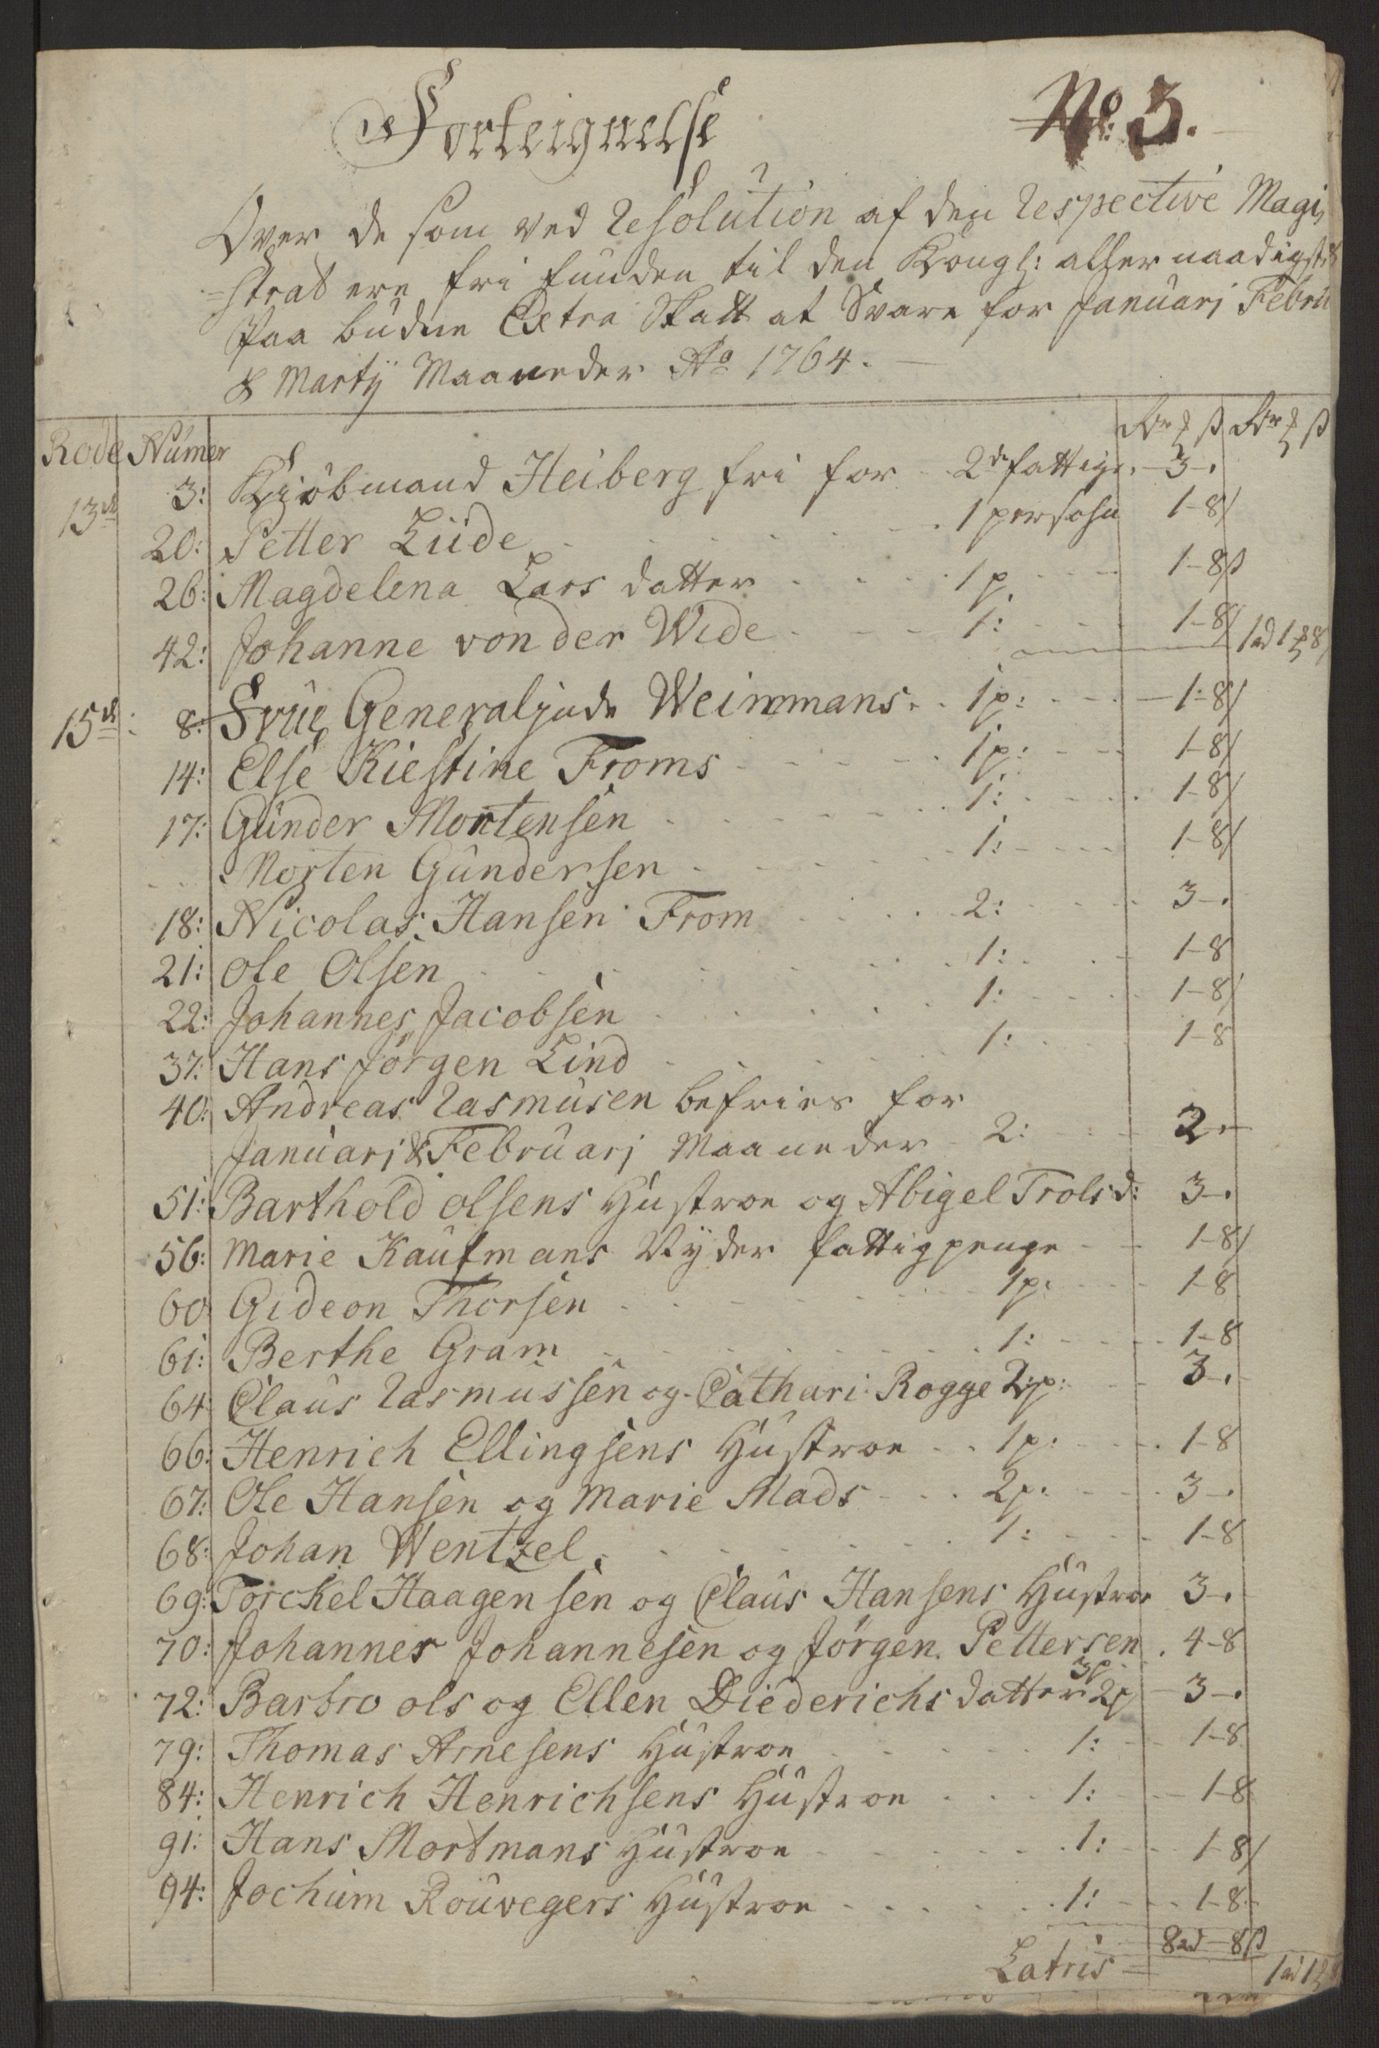 Forteignelse
No: 3.
Over de som ved Resolution af den Respective Magi,
=strat ere fri funden til den Kongl: allernaadigst
Paa budne Extra Skatt at Svare for Januarj Febru
& Martij Maaneder Ao 1764.
Rode Numer
13de 3: Kiöbmand Heiberg fri for 2de fattige. 3-.
20: Petter Lüde 1 persohn 1-8/
26: Magdelena Lars datter 1p 1-8ß
42: Johanne von der Wide 1: 1-8/
15de: 8: Frue Generaljnde Weinmans 1p: 1-8/
14: Else Kiestine Froms 1p: 1-8/
17: Gunder Mortensen 1: 1-8/
Morten Gundersen 1: 1-8/
18: Nicolas Hansen From 2: 3-.
21: Ole Olsen 1: 1-8
22: Johannes Jacobsen 1: 1-8/
37: Hans Jörgen Lind 1: 1-8
40: Andreas Rasmusen befries for
Januarj & Februarj Maaneder 2: 2.-
51: Barthold olsens Hustroe og Abigel Trolsd: 3-.
56: Marie Kaufmans Nyder fattigpenge 1-8/
60 Gideon Thorsen 1p: 1-8
61: Berthe Gram 1: 1-8
64 Claus Rasmussen og Cathari: Rogge 2:p: 3-.
66: Henrich Ellingsens Hustroe 1p: 1-8
67: Ole Hansen og Marie Mads 2p: 3-.
68: Johan Wentzel 1: 1-8
69: Torckel Haagensen og Claus Hansens Hustroe 3-.
70: Johannes Johannesen og Jörgen Pettersen 3p 4-8
72: Barbro ols og Ellen Diederichs datter 2p 3-.
79: Thomas Arnesens Hustroe 1: 1-8
84: Henrich Henrichsens Hustroe 1: 1-8
91: Hans Mortmans Hustroe 1: 1-8/
94: Jochum Rouvegers Hustroe 1: 1-8
Latris